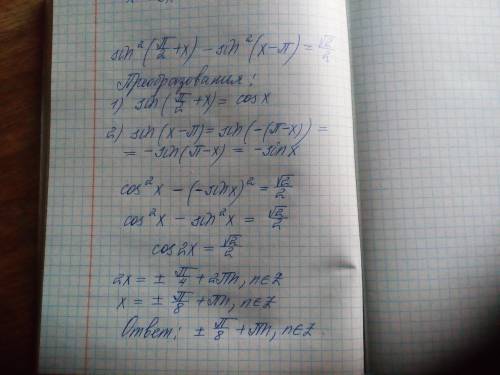 sin²(π/2+x) - sin²(x-π) = √2/2
Преобразования:
1) sin(π/2+x) = cosx
2) sin(x-π) = sin(-(π-x)) =
= -sin(π-x) = -sinx
cos²x - (-sinx)² = √2/2
cos²x - sin²x = √2/2
cos2x = √2/2
2x = ± π/4 + 2πn, n∈Z
x = ± π/8 + πn, n∈Z
Ответ: ± π/8 + πn, n∈Z.